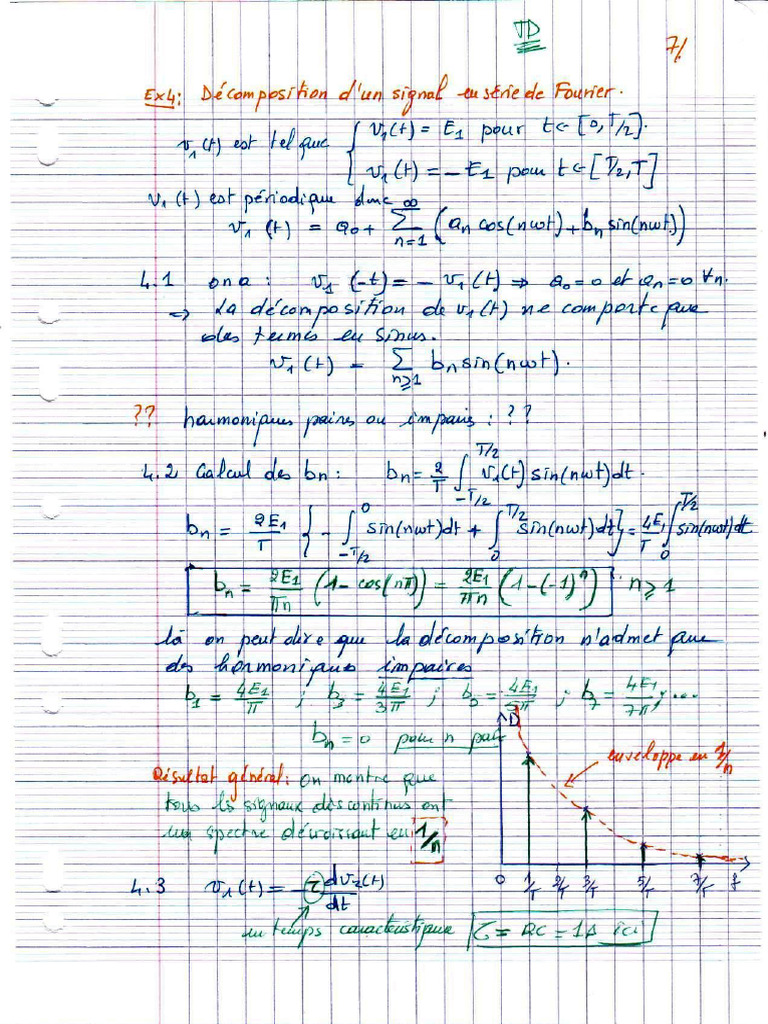 TD
7/.
Ex4: Décomposition d'un signal en série de Fourier.
v₁(t) est tel que { v₁(t) = E₁ pour t ∈ [0, T/2].
v₁(t) = - E₁ pour t ∈ [T/2, T]
v₁(t) est périodique donc
v₁(t) = a₀ + ∑_{n=1}^{∞} (aₙ cos(nωt) + bₙ sin(nωt))
4.1 on a : v₁(-t) = - v₁(t) ⇒ a₀ = 0 et aₙ = 0 ∀n.
⇒ La décomposition de v₁(t) ne comporte que
des termes en sinus.
v₁(t) = ∑_{n≥1} bₙ sin(nωt).
?? harmoniques paires ou impaires : ??
4.2 Calcul des bₙ : bₙ = 2/T ∫_{-T/2}^{T/2} v₁(t) sin(nωt) dt.
bₙ = 2E₁/T { - ∫_{-T/2}^{0} sin(nωt)dt + ∫_{0}^{T/2} sin(nωt)dt } = 4E₁/T ∫_{0}^{T/2} sin(nωt)dt
bₙ = 2E₁/πn (1 - cos(nπ)) = 2E₁/πn (1 - (-1)ⁿ) n ≥ 1
là on peut dire que la décomposition n'admet que
des harmoniques impaires
b₁ = 4E₁/π ; b₃ = 4E₁/3π ; b₅ = 4E₁/5π ; b₇ = 4E₁/7π ; ...
bₙ = 0 pour n pair
enveloppe en 1/n
Résultat général : On montre que
tous les signaux discontinus ont
un spectre décroissant en 1/n
0 1/T 2/T 3/T 5/T 7/T f
4.3 v₁(t) = - τ dv₂(t)/dt
un temps caractéristique τ = RC = 1s ici